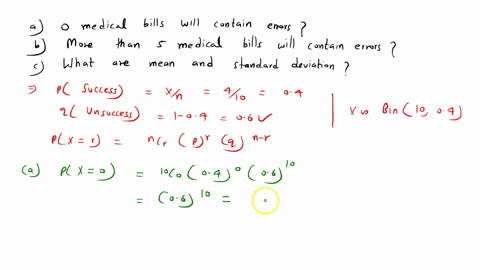 a) 0 medical bills will contain errors?
b) More than 5 medical bills will contain errors?
c) What are mean and standard deviation?
⇒ P( Success) = x/n = 4/10 = 0.4
q( Unsuccess) = 1-0.4 = 0.6 ✓
X ∽ Bin( 10, 0.4)
P(X = r) = ncr (p)^r (q)^n-r
(a) P(X = 0) = 10C0 (0.4)^0 (0.6)^10
= (0.6)^10 =